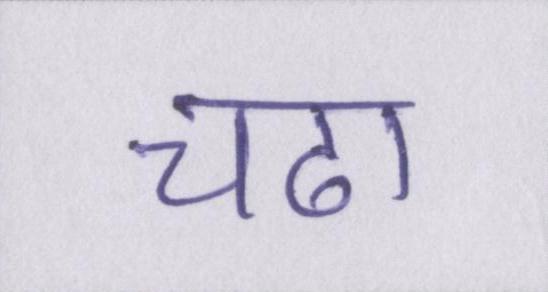 चढा